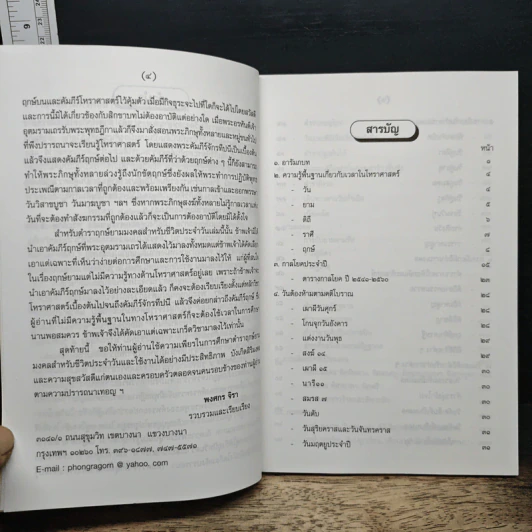 (๔)
ฤกษ์บนและคัมภีร์โหราศาสตร์ไว้คุ้มตัว เมื่อมีกิจธุระจะไปที่ใดก็จะได้ไปโดยสวัสดี
และการนี้มิได้เกี่ยวข้องกับสิกขาบทไม่ต้องอาบัติแต่อย่างใด เมื่อพระอรหันต์เจ้า
อุตมรามเถรรับพระพุทธฎีกาแล้วก็จึงมาสั่งสอนพระภิกษุทั้งหลายและหมู่ชนทั่วไป
ที่พึงปรารถนาจะเรียนรู้โหราศาสตร์ โดยแสดงพระคัมภีร์จักรทีปนีเป็นเบื้องต้น
แล้วจึงแสดงคัมภีร์ฤกษ์ต่อไป และด้วยคัมภีร์ที่ว่าด้วยฤกษ์ต่าง ๆ นี้ก็ยังสามารถ
ทำให้พระภิกษุทั้งหลายล่วงรู้ถึงนักขัตฤกษ์ซึ่งยังผลให้พระทำการปฏิบัติพุทธ
ประเพณีตามกาลเวลาที่ถูกต้องและพร้อมเพรียงกัน เช่นกาลเข้าและออกพรรษา
วันวิสาขบูชา วันมาฆบูชา ฯลฯ ซึ่งหากพระภิกษุสงฆ์ทั้งหลายไม่รู้กาลเวลาเช่น
วันที่จะต้องทำสังฆกรรมที่ถูกต้องแล้วก็จะเป็นการต้องอาบัติโดยมิได้ตั้งใจ
สำหรับตำราฤกษ์ยามมงคลสำหรับชีวิตประจำวันเล่มนี้นั้น ข้าพเจ้ามิ
นำเอาคัมภีร์ฤกษ์ที่พระอุตมรามเถรได้แสดงไว้มาลงทั้งหมดแต่ข้าพเจ้าได้คัดเลือก
เอาแต่เฉพาะที่เห็นว่าง่ายต่อการศึกษาและการใช้งานมาลงไว้ให้ แก่ผู้ที่สนใจ
ในเรื่องฤกษ์ยามแต่ไม่มีความรู้ทางด้านโหราศาสตร์อยู่เลย เพราะถ้าข้าพเจ้าจะ
นำคัมภีร์ฤกษ์มาลงไว้อย่างละเอียดแล้ว ก็คงจะต้องเรียบเรียงตั้งแต่หลักวิชา
โหราศาสตร์เบื้องต้นไปจนถึงคัมภีร์จักรทีปนี แล้วจึงค่อยกล่าวถึงคัมภีร์ฤกษ์ ซึ่ง
ผู้อ่านที่ไม่มีความรู้พื้นฐานในทางโหราศาสตร์ก็จะต้องใช้เวลาในการศึกษา
นานพอสมควร ข้าพเจ้าจึงได้คัดเอาแต่เฉพาะเกร็ดวิชามาลงไว้เท่านั้น
สุดท้ายนี้ ขอให้ท่านผู้อ่านใช้ความเพียรในการศึกษาตำราฤกษ์ยาม
มงคลสำหรับชีวิตประจำวันและใช้งานได้อย่างมีประสิทธิภาพ บังเกิดสิริมงคล
และความสุขสวัสดีแก่ตนเองและครอบครัวตลอดจนคนรอบข้างของท่านผู้อ่าน
ตามความปรารถนาเทอญ ฯ
พงศกร จิรา
รวบรวมและเรียบเรียง
๓๐๔๑/๑ ถนนสุขุมวิท เขตบางนา แขวงบางนา
กรุงเทพฯ ๑๐๒๖๐ โทร. ๓๙๖-๑๔๗๗, ๗๔๗-๕๕๗๑
E-mail : phongragorn @ yahoo. com
สารบัญ
หน้า
๑. อารัมภบท ๑
๒. ความรู้พื้นฐานเกี่ยวกับเวลาในโหราศาสตร์ ๔
- วัน ๔
- ยาม ๕
- ดิถี ๖
- ราศี ๗
- ฤกษ์ ๘
๓. กาลโยคประจำปี ๑๕
- ตารางกาลโยค ปี ๒๕๔๑-๒๕๖๐
๔. วันต้องห้ามตามคติโบราณ ๒๘
- เผาผีวันศุกร์ ๒๘
- โกนจุกวันอังคาร ๒๘
- แต่งงานวันพุธ ๒๘
- สงฆ์ ๑๔ ๒๙
- เผาผี ๑๕
- นารี๑๑ ๓๐
- สมรส ๗ ๓๐
- วันดับ ๓๐
- วันสุริยคราสและวันจันทรคราส ๓๐
- วันมฤตยูประจำปี ๓๑